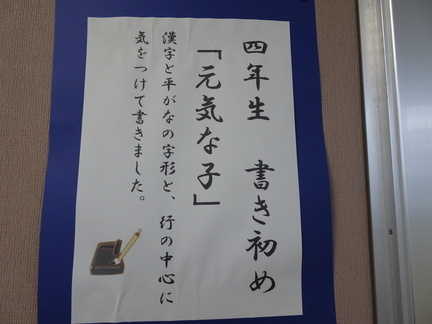 四年生　書き初め
「元気な子」
漢字と平がなの字形と、行の中心に
気をつけて書きました。